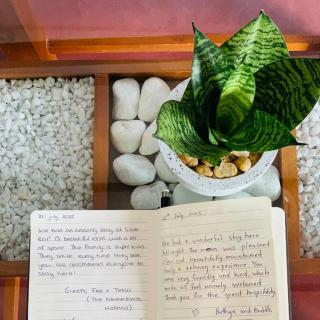 30 july 2025
We had an amazing stay at Silver
Roi! A beautiful room with a lot
of space. The family is super kind.
They smile every time they see
you. We recommend everyone to
stay here!
Greets, Fee & Tessa
(The Netherlands,
Holland)
July, 2025
We had a wonderful stay here
all night. The room was pleasant
and had beautifully maintained.
Truly a relaxing experience. You
were very friendly and kind, which
made us feel warmly welcomed.
Thank you for the great hospitality.
and